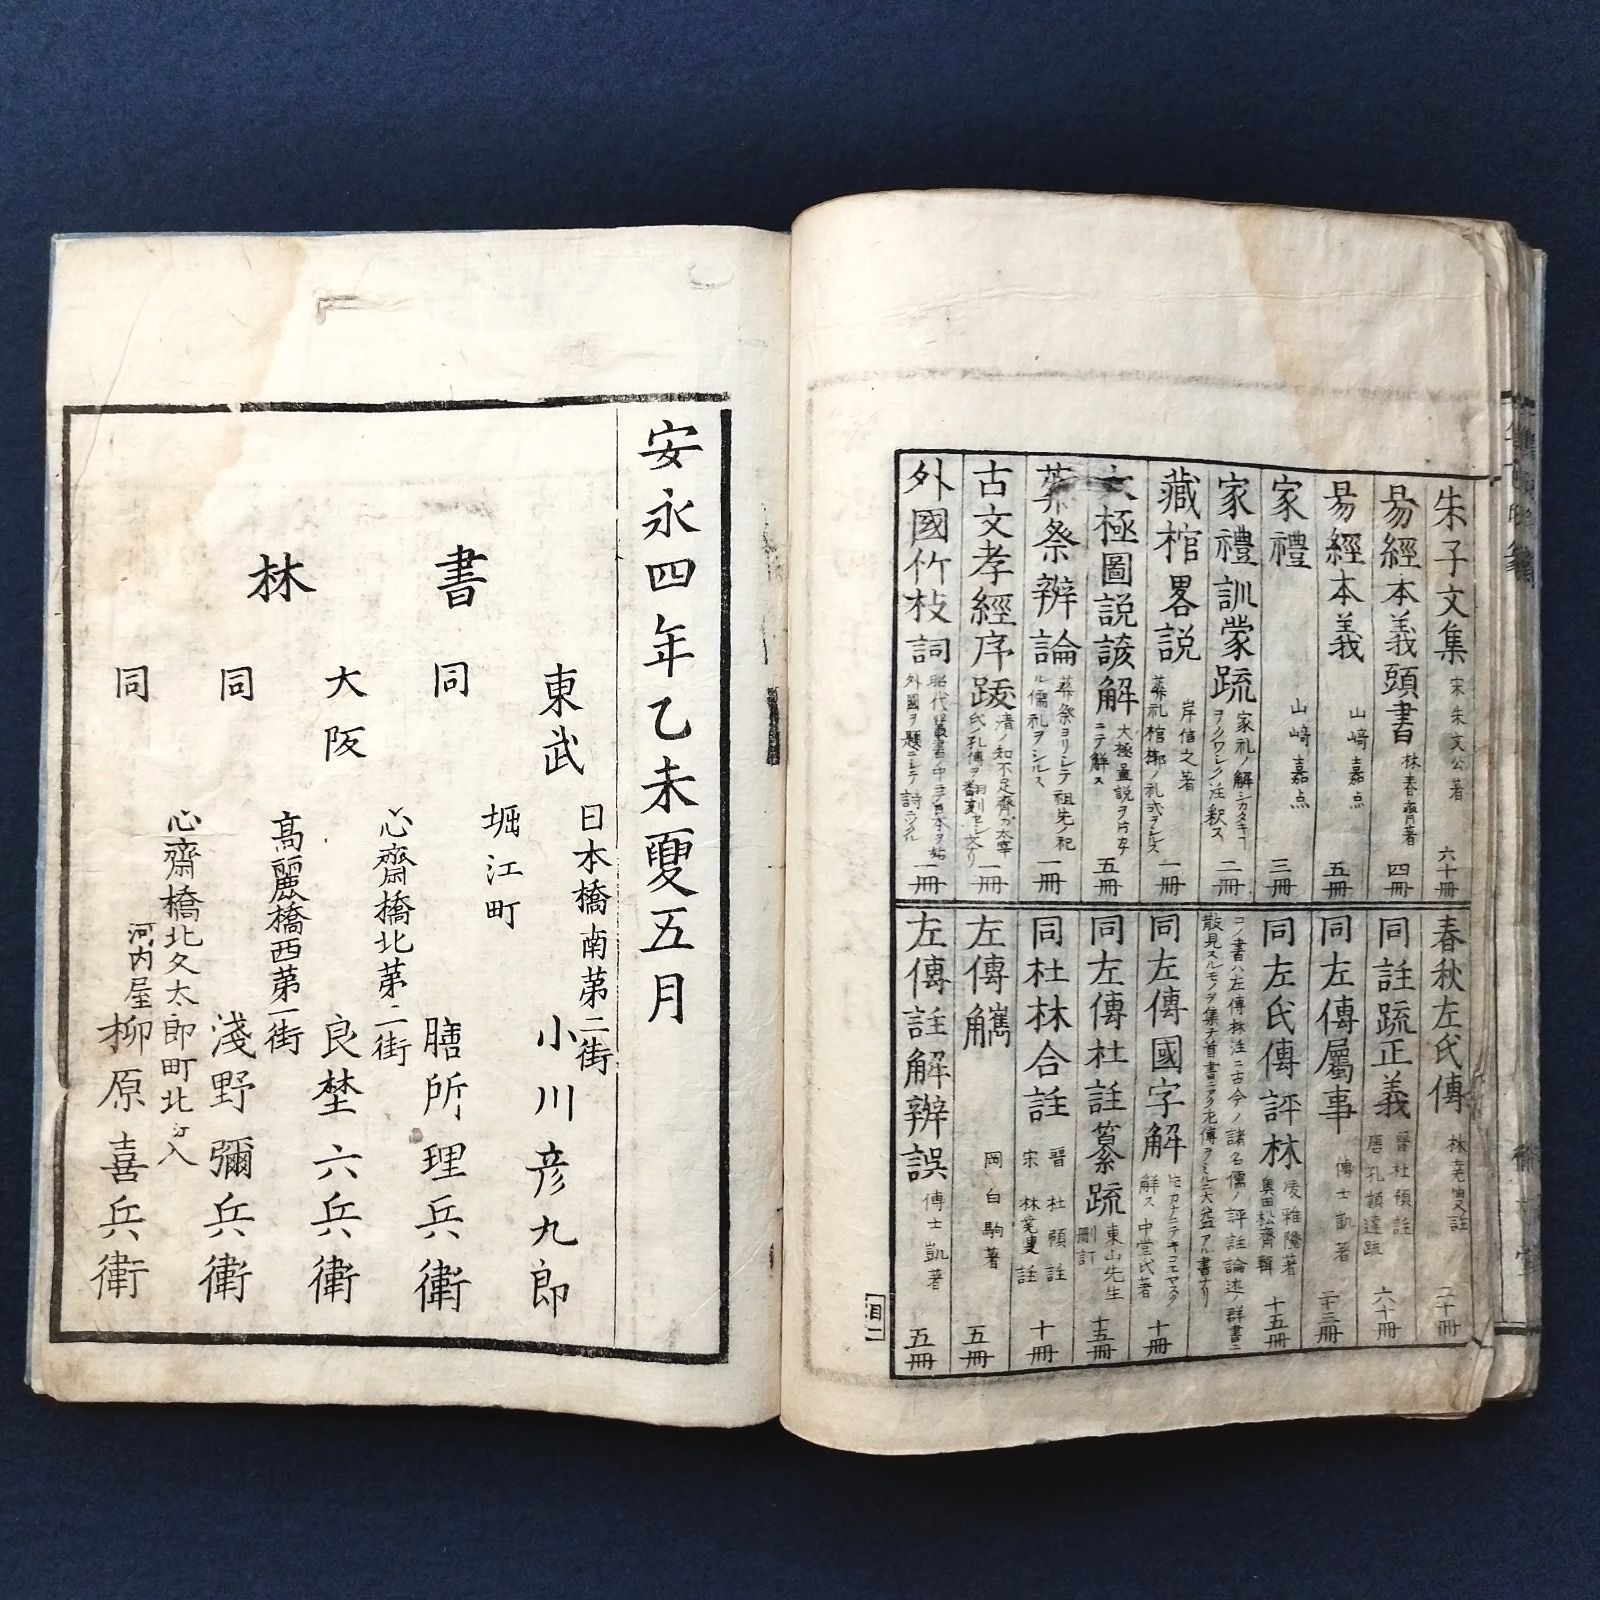 朱子文集 宋朱文公著 六十冊
易經本義頭書 林春齊著 四冊
易經本義 山﨑嘉点 五冊
家禮 山﨑嘉点 三冊
家禮訓蒙疏 家礼ノ解シカタキヲヲクワシク注釈ス 二冊
藏棺畧説 岸信之著 葬礼棺槨ノ礼式ヲシルス 一冊
極圖説諺解 大極圖説ヲ片カナニテ解ス 五冊
葬祭辨論 葬祭ヨリシテ祖先ノ祀ル儒礼ヲシルス 一冊
古文孝經序跋 清ノ知不足齊 一冊
外國竹枝詞 外國ヲ題ニシテ詩ニツクル 一冊
春秋左氏傳 林堯叟註 二十冊
同註疏正義 晉杜預註 唐孔頴達疏 六十冊
同左傳屬事 傅士凱著 二十三冊
同左氏傳評林 凌雅隆著 奥田松齊輯 十五冊
コノ書ハ左傳林注ニ古今ノ諸名儒ノ評註論述ノ群書ニ
散見スルモノヲ集テ首書ニアク左傳ヲミルニ大益アル書ナリ
同左傳國字解 ヒカナニテキコエヤスク解ス 中堂氏著 十冊
同左傳杜註纂疏 東山先生刪訂 十五冊
同杜林合註 晉杜預註 宋林堯叟註 十冊
左傳觿 岡白駒著 五冊
左傳註解辨誤 傅士凱著 五冊
目二
安永四年乙未夏五月
書林
東武 日本橋南第二街 小川彦九郎
同 堀江町 膳所理兵衛
大阪 心齋橋北第二街 良埜六兵衛
同 高麗橋西第一街 淺野彌兵衛
同 心齋橋北久太郎町北ヘ入 河内屋 柳原喜兵衛